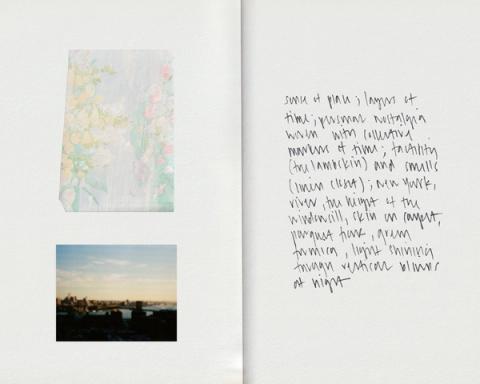 sense of place; layers of
time; personal nostalgia
woven with collective
markers of time; tactility
(the lambskin) and smells
(linen closet); new york,
river, the height of the
windowsill, skin on carpet,
parquet floor, green
formica, light shining
through vertical blinds
at night